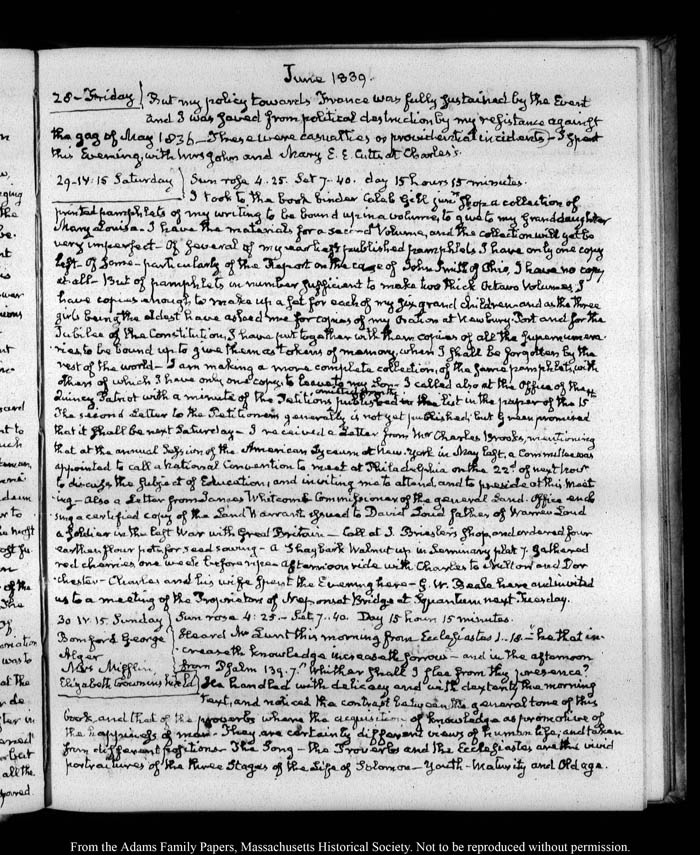 June 1839.
28 - Friday } But my policy towards France was fully sustained by the Event
and I was saved from political destruction by my resistance against
the gag of May 1836 - These were casualties or providential incidents - I spent
this Evening, with Mrs John and Mary E. E. Cutts at Charles's.
29 - IV: 15 Saturday } Sun rose 4. 25. Set 7. 40. day 15 hours 15 minutes.
I took to the book binder Caleb Gill junr's shop a collection of
printed pamphlets of my writing to be bound up in a volume, to give to my Granddaughter
Mary Louisa. I have the materials for a second Volume, and the collection will yet be
very imperfect - Of several of my earliest published pamphlets I have only one copy
left - Of some - particularly of the Report on the case of John Smith of Ohio, I have no copy
at all - But of pamphlets in number sufficient to make two thick Octavo Volumes, I
have copies enough to make up a set for each of my six grand children - and as the three
girls being the eldest have asked me for copies of my Oration at Newbury Port and for the
Jubilee of the Constitution, I have put together with them copies of all the supernumera-
-ries to be bound up to give them as tokens of memory, when I shall be forgotten by the
rest of the world - I am making a more complete collection, of the same pamphlets, with
others of which I have only one copy, to leave to my Son - I called also at the Office of the
Quincy Patriot with a minute of the Petitions omitted in the list in the paper of the 15th
The second Letter to the Petitioners generally is not yet published; but Green promised
that it shall be next Saturday - I received a Letter from Mr Charles Brooks, mentioning
that at the annual Session of the American Lyceum at New-York in May last, a Committee was
appointed to call a National Convention to meet at Philadelphia on the 22d of next Novr
to discuss the subject of Education, and inviting me to attend, and to preside at this meet
-ing - Also a Letter from James Whitcomb Commissioner of the general Land Office enclo
sing a certified copy of the Land Warrant issued to David Loud father of Warren Loud
a Soldier in the last War with Great Britain - Call at J. Brieslers shop, and ordered four
earthen flour pots, for seed sowing - A Shagbark Walnut up in Seminary plat 7. gathered
red cherries one week before ripe - afternoon ride with Charles to Milton and Dor
chester - Charles and his wife spent the Evening here - G. W. Beale here and invited
us to a meeting of the Proprietors of Neponset Bridge at Squantum next Tuesday.
30. IV. 15. Sunday } Sun rose 4: 25 - Set 7. 40. Day 15 hours 15 minutes.
Bomford George } Heard Mr Lunt this morning from Ecclesiastes 1. 18 - he that in-
Alger } creaseth knowledge increaseth sorrow - and in the afternoon
Mrs Mifflin } from Psalm 139. 7. Whither shall I flee from thy presence?
Elizabeth Crowninshield } He handled with delicacy and with dexterity the morning
Text, and noticed the contrast between the general tone of this
book, and that of the proverbs where the acquisition of knowledge as promotive of
the happiness of man - They are certainly different views of human life, and taken
from different positions - The Song - the Proverbs and the Ecclesiastes are the vivid
portraitures of the three Stages of the Life of Solomon - Youth - Maturity and Old age.
From the Adams Family Papers, Massachusetts Historical Society. Not to be reproduced without permission.